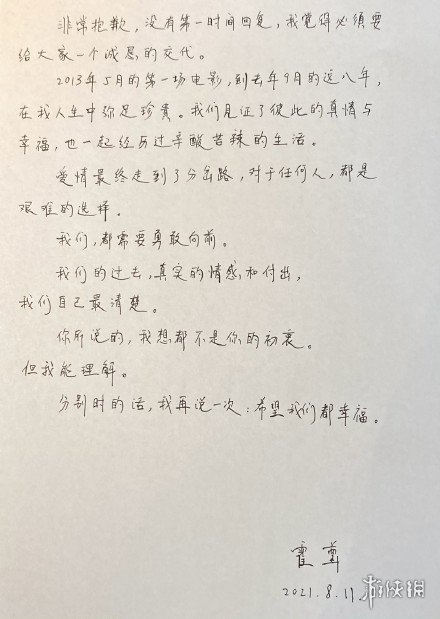 非常抱歉，没有第一时间回复，我觉得必须要
给大家一个诚恳的交代。
2013年5月的第一场电影，到去年9月的这八年，
在我人生中弥足珍贵。我们见证了彼此的真情与
幸福，也一起经历过辛酸苦辣的生活。
爱情最终走到了分岔路，对于任何人，都是
艰难的选择。
我们，都需要勇敢向前。
我们的过去，真实的情感和付出，
我们自己最清楚。
你所说的，我想都不是你的初衷。
但我能理解。
分别时的话，我再说一次：希望我们都幸福。
霍尊
2021.8.11
游侠网